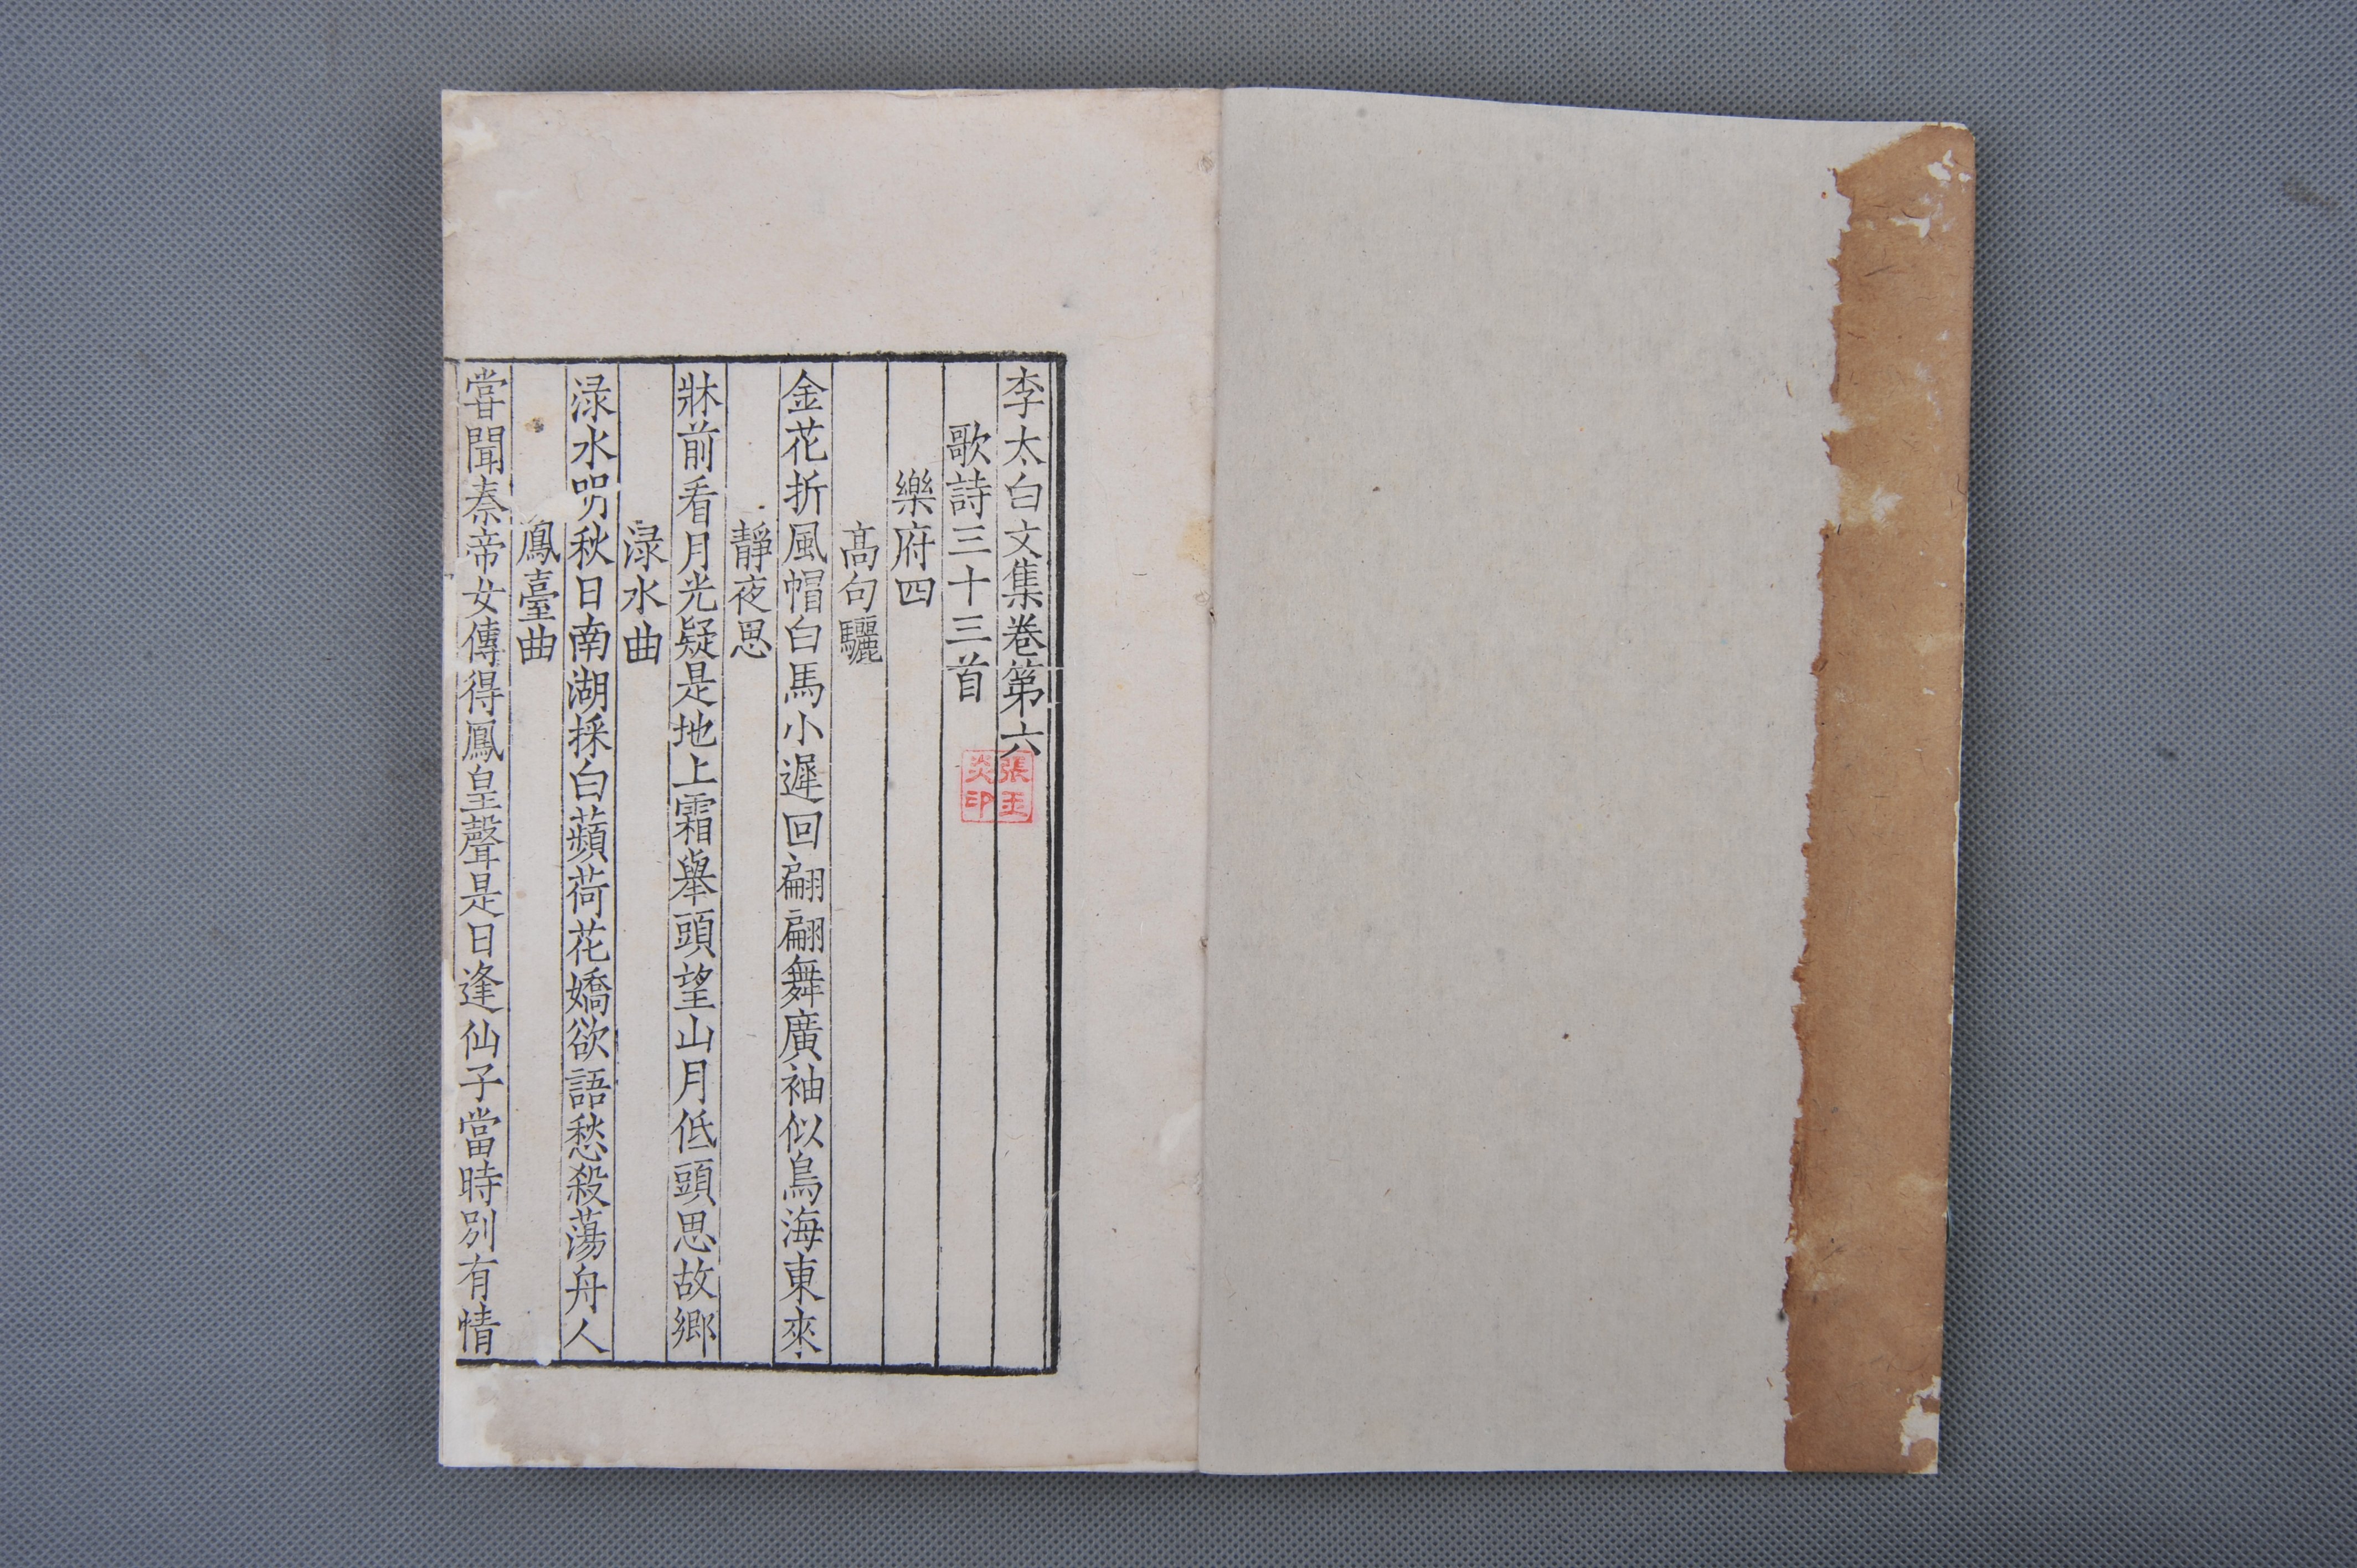 李太白文集卷第六
歌詩三十三首
樂府四
高句驪
金花折風帽白馬小遲回翩翩舞廣袖似鳥海東來
靜夜思
牀前看月光疑是地上霜舉頭望山月低頭思故鄉
淥水曲
淥水明秋日南湖採白蘋荷花嬌欲語愁殺蕩舟人
鳳臺曲
嘗聞秦帝女傳得鳳皇聲是日逢仙子當時別有情
張玉
炎印